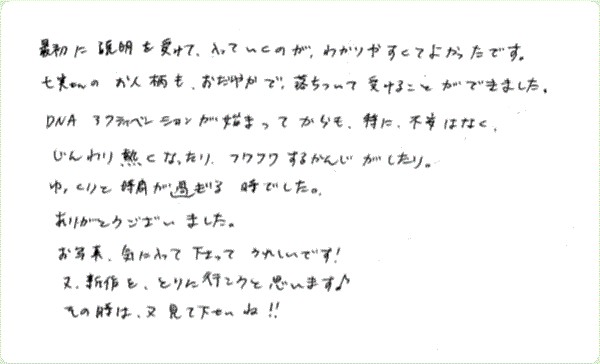 最初に説明を受けて、入っていくのが、わかりやすくてよかったです。
七実さんの お人柄も、おだやかで、落ちついて 受けること ができました。
DNA アクティベーションが始まって からも、特に、不安はなく、
じんわり 熱くなったり、フワフワするかんじ がしたり。
ゆっくりと 時間が過ぎる 時でした。
ありがとうございました。
お写真、気に入って 下さって うれしいです!
又、新作を、とりに行こうと 思います♪
その時は、又 見て下さいね!!